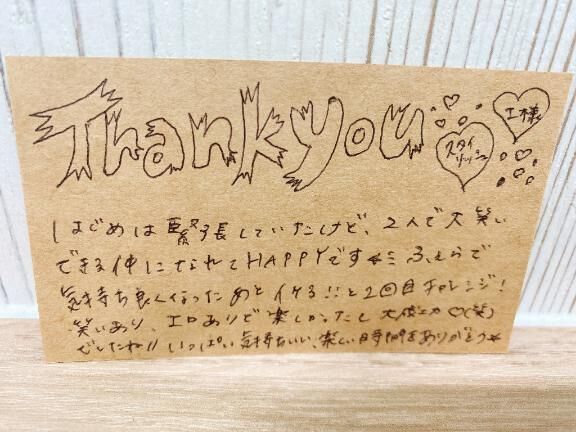 Thank you
スタイリッシュ
工様
はじめは緊張していたけど、2人で大笑い
できる仲になれてHAPPYです☆ミ ふぇらで
気持ち良くなったあとイケる!!と2回目チャレンジ!
笑いあり、エロありで楽しかったし大成功♡(笑)
でしたね!! いっぱい気持ちいい、楽しい時間をありがとう☆